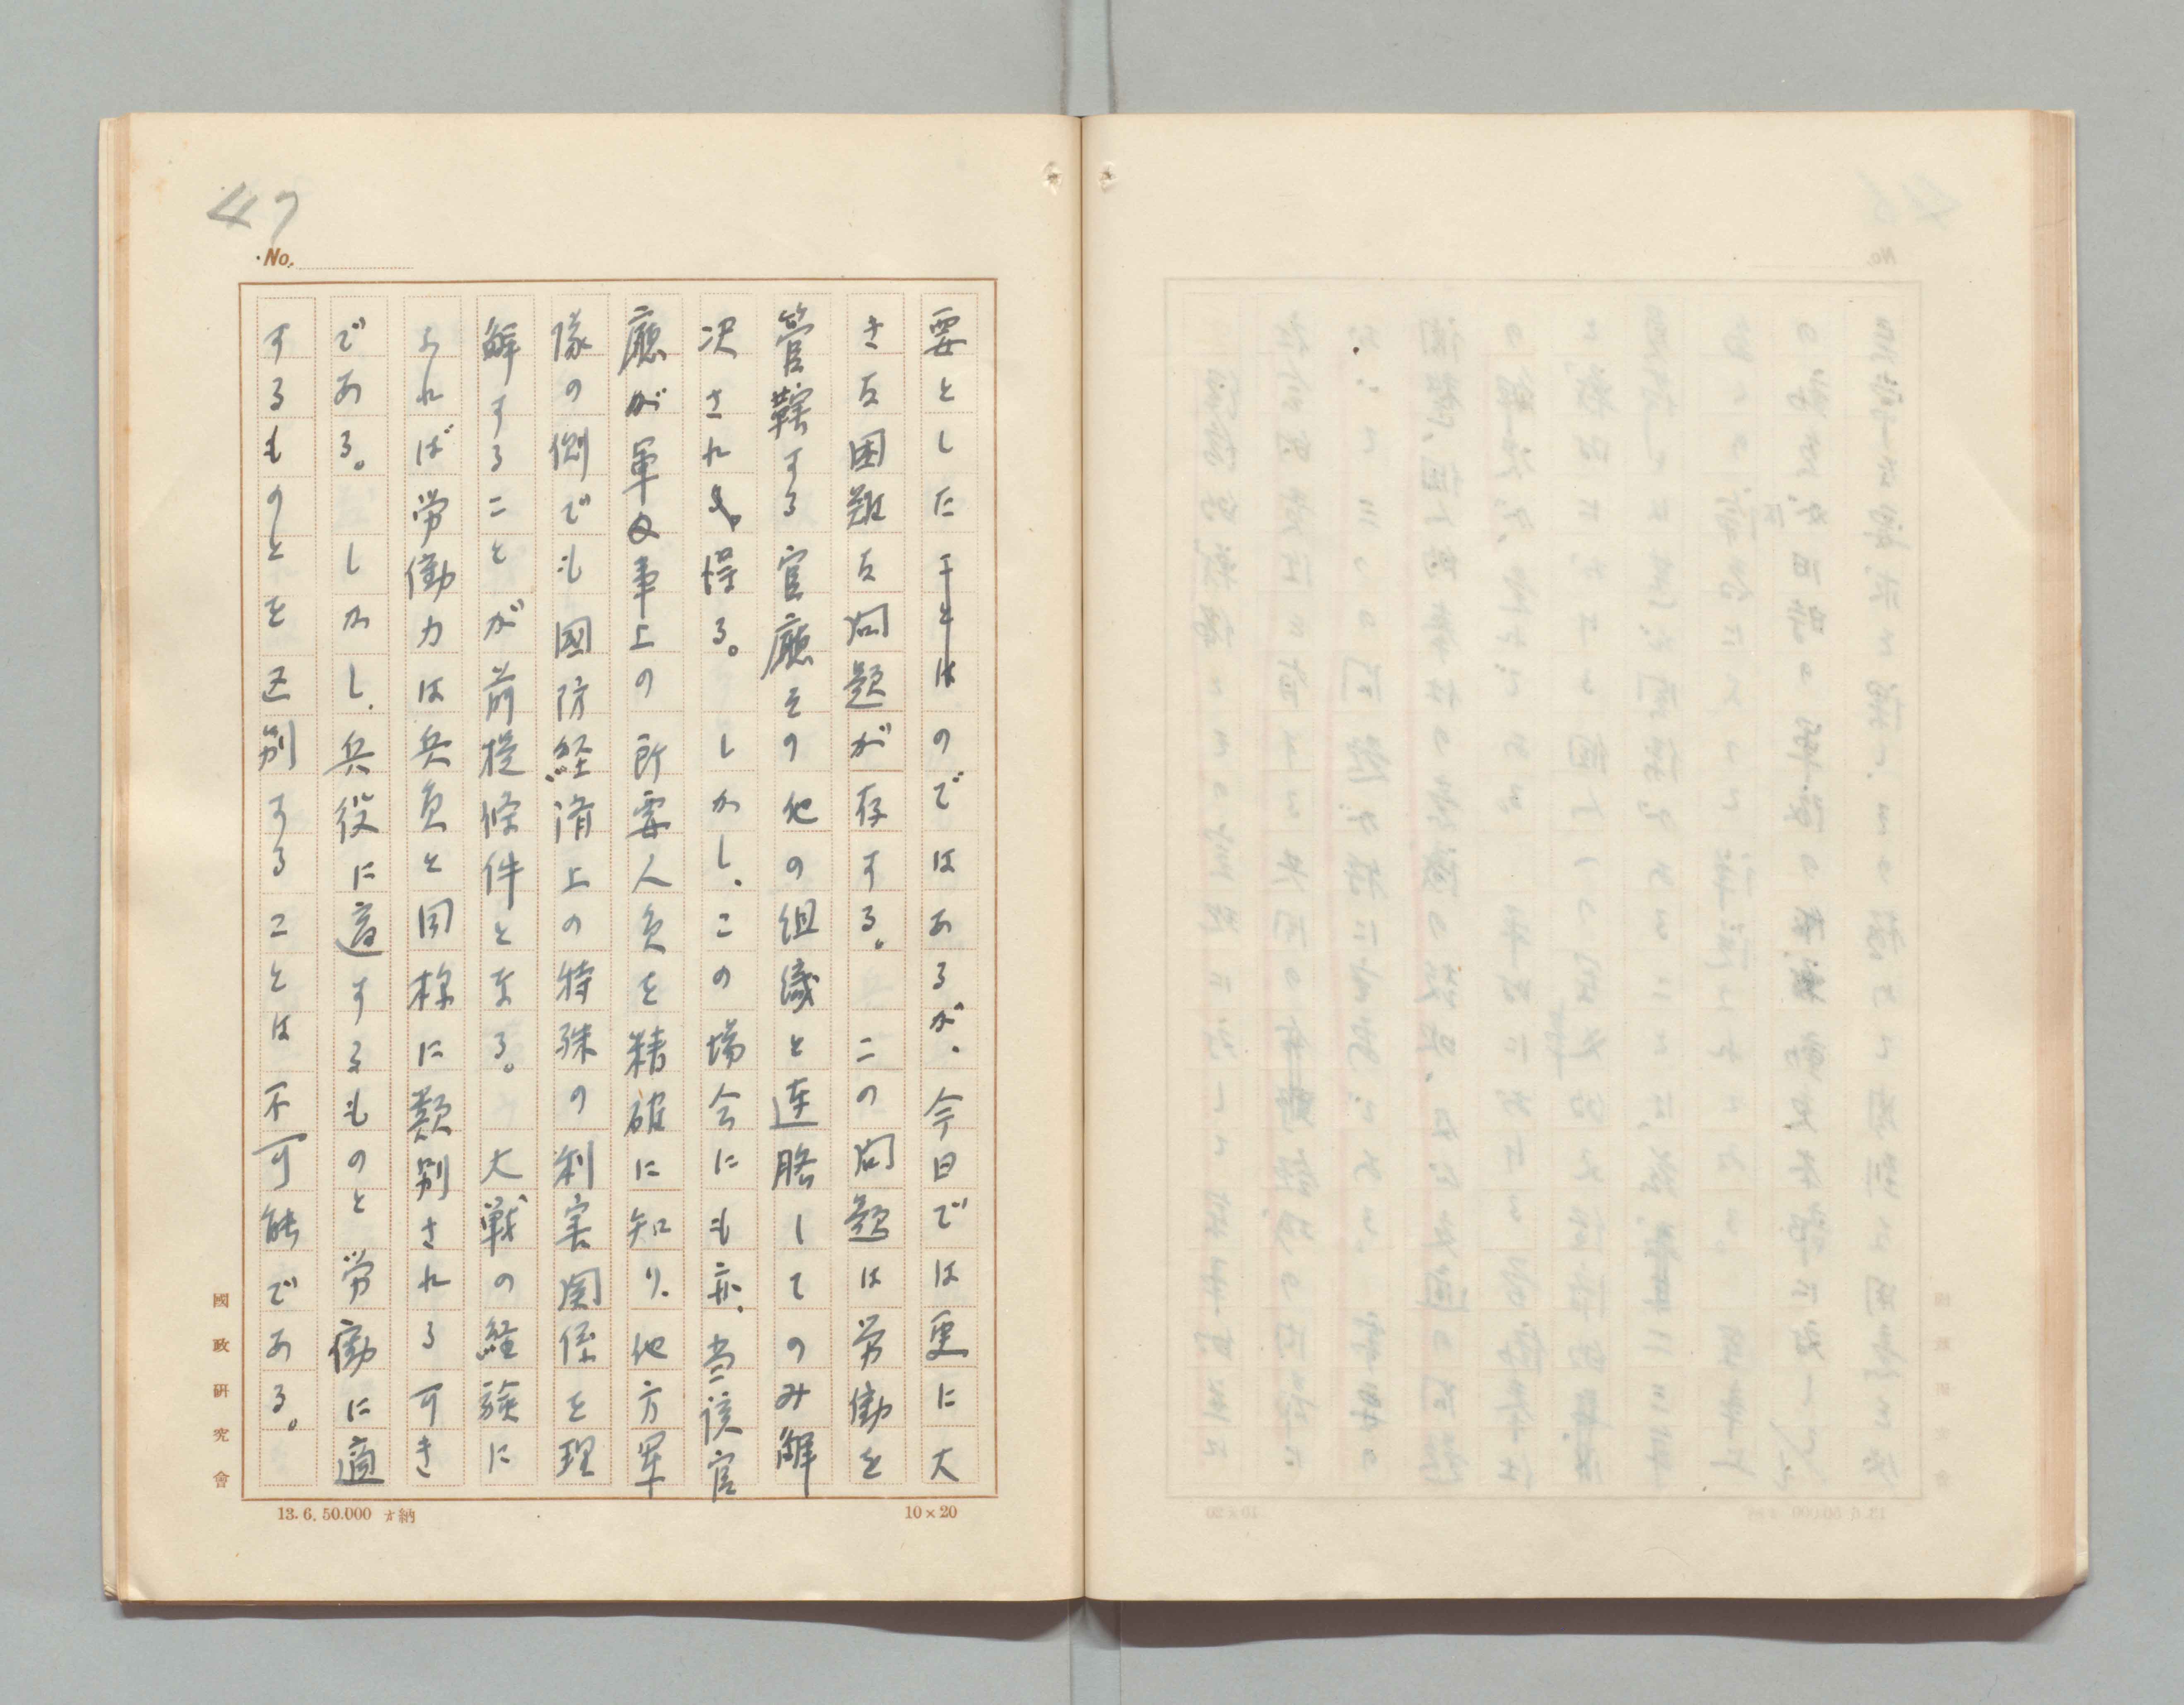 47
No.
要としたのではあるが、今日では更に大
きな困難な問題が存する。この問題は労働を
管轄する官廳その他の組織と連絡してのみ解
決され得る。しかし、この場合にも亦、当該官
廳が軍事上の所要人員を精確に知り、他方軍
隊の側でも國防経済上の特殊の利害関係を理
解することが前提條件となる。大戦の経験に
よれば労働力は兵員と同様に類別される可き
である。しかし、兵役に適するものと労働に適
するものとを区別することは不可能である。
國政研究會
13.6.50.000 オ納
10×20